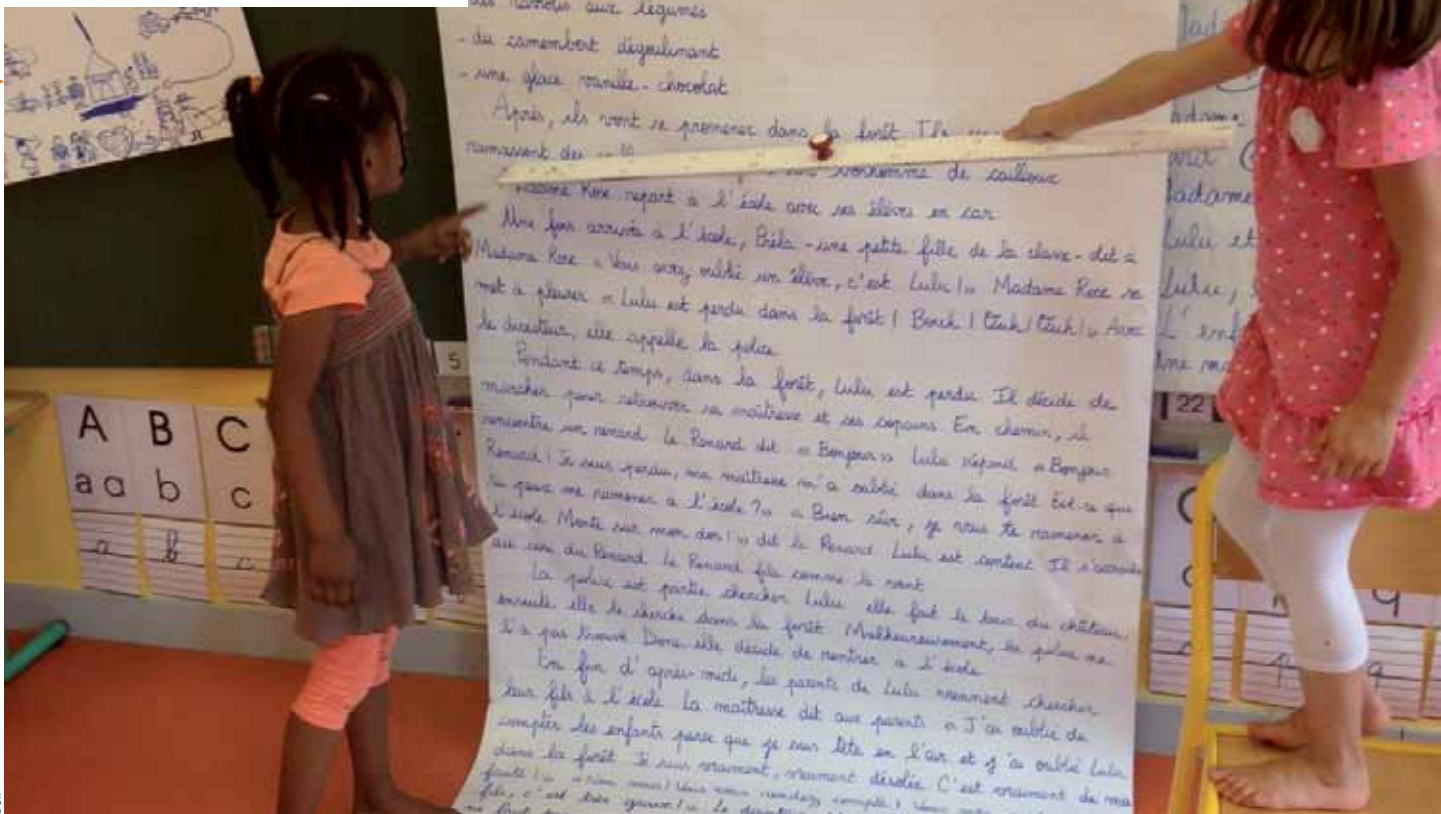 aux légumes
- du camembert dégoulinant
- une glace vanille-chocolat
Après, ils vont se promener dans la forêt. Ils
ramassent des
de cailloux
Madame Rose repart à l'école avec ses élèves en car
Une fois arrivés à l'école, - une petite fille de la classe - dit à
Madame Rose « Vous avez oublié un élève, c'est Lulu ! » Madame Rose se
met à pleurer « Lulu est perdu dans la forêt ! Avec
le directeur, elle appelle la police
Pendant ce temps, dans la forêt, Lulu est perdu Il décide de
marcher pour retrouver sa maîtresse et ses copains En chemin, il
rencontre un renard Le Renard dit « Bonjour » Lulu répond « Bonjour
Renard ! Je suis perdu, ma maîtresse m'a oublié dans la forêt Est-ce que
tu peux me ramener à l'école ? » « Bien sûr, je vais te ramener à
l'école Monte sur mon dos ! » dit le Renard Lulu est content Il s'accroche
au cou du Renard Le Renard file comme le vent
La police est partie chercher Lulu elle fait le tour du château,
ensuite elle le cherche dans la forêt Malheureusement, la police ne
l'a pas trouvé Donc elle décide de rentrer à l'école
En fin d'après-midi, les parents de Lulu viennent chercher
leur fils à l'école La maîtresse dit aux parents « J'ai oublié de
compter les enfants parce que je suis tête en l'air et j'ai oublié Lulu
dans la forêt Je suis vraiment, vraiment désolée C'est vraiment de ma
faute ! » rendez compte ! Vous
fils, c'est très grave ! » Le directeur
ne faut pas
Madame
Lulu et
Lulu,
L'enf
Une
5
22
A B C
a a b c
a b c
q
q